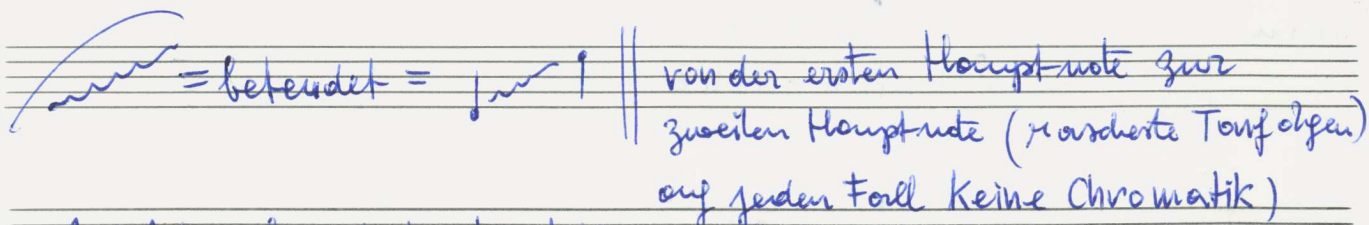 = bedeutet = von der ersten Hauptnote zur
zweiten Hauptnote (rascheste Tonfolgen)
auf jeden Fall Keine Chromatik)